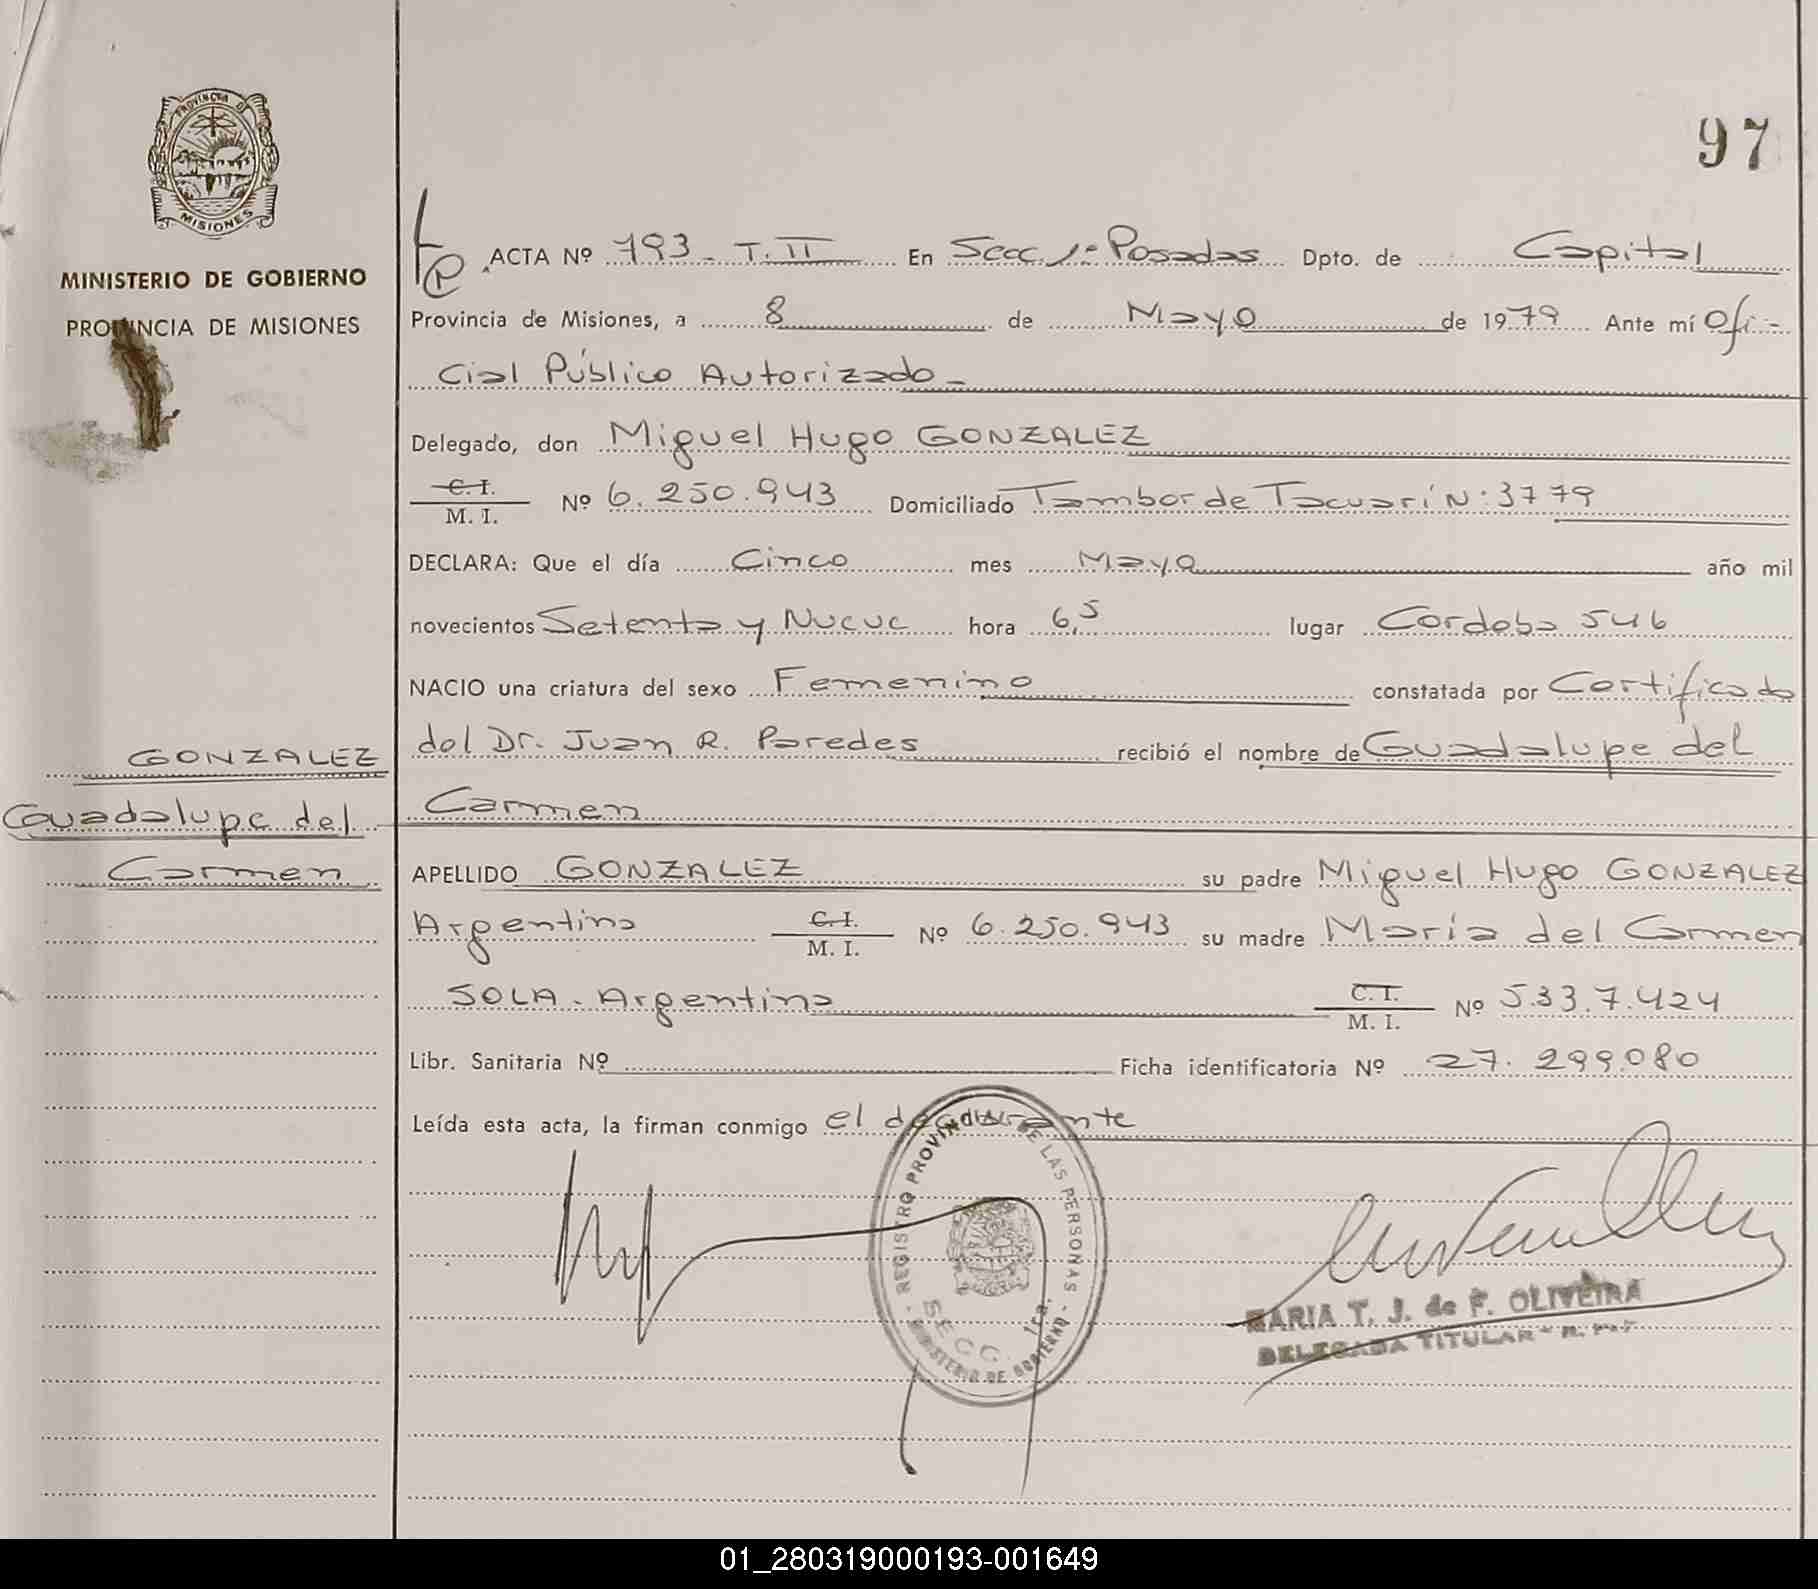 PROVINCIA DE
MISIONES
MINISTERIO DE GOBIERNO
PROVINCIA DE MISIONES
97
ACTA Nº 793 - T. II En Secc. 1ª Posadas Dpto. de Capital
Provincia de Misiones, a 8 de Mayo de 1979 Ante mí Ofi-
cial Público Autorizado -
Delegado, don Miguel Hugo GONZALEZ
C. I.
M. I. Nº 6.250.943 Domiciliado Tambor de Tacuarí N: 3779
DECLARA: Que el día Cinco mes Mayo año mil
novecientos Setenta y Nueve hora 6,5 lugar Cordoba 546
NACIO una criatura del sexo Femenino constatada por Certificado
del Dr. Juan R. Paredes recibió el nombre de Guadalupe del
Carmen
GONZALEZ
Guadalupe del
Carmen
APELLIDO GONZALEZ su padre Miguel Hugo GONZALEZ
Argentino C. I. M. I. Nº 6.250.943 su madre María del Carmen
SOLA - Argentina C. I. M. I. Nº 5.33.7.424
Libr. Sanitaria Nº Ficha identificatoria Nº 27.299.080
Leída esta acta, la firman conmigo el declarante
REGISTRO PROVINCIAL DE LAS PERSONAS - MINISTERIO DE GOBIERNO -
SECC. 1ra.
MARIA T. J. de F. OLIVEIRA
DELEGADA TITULAR
01_280319000193-001649